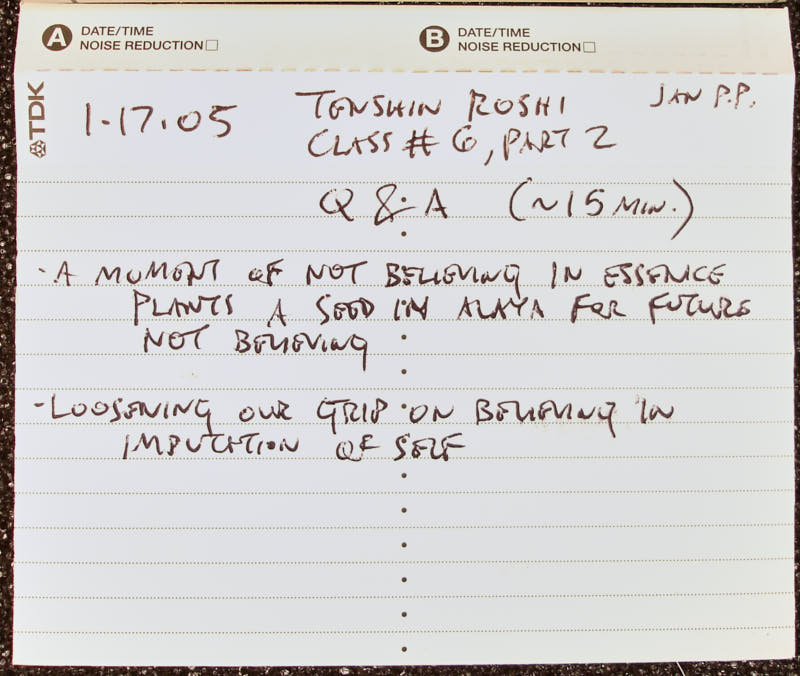 A DATE/TIME NOISE REDUCTION
B DATE/TIME NOISE REDUCTION
TDK
1.17.05 TENSHIN ROSHI JAN P.P.
CLASS # 6, PART 2
Q & A (~15 MIN.)
· A MOMENT OF NOT BELIEVING IN ESSENCE
PLANTS A SEED IN ALAYA FOR FUTURE
NOT BELIEVING
- LOOSENING OUR GRIP ON BELIEVING IN
IMPUTATION OF SELF